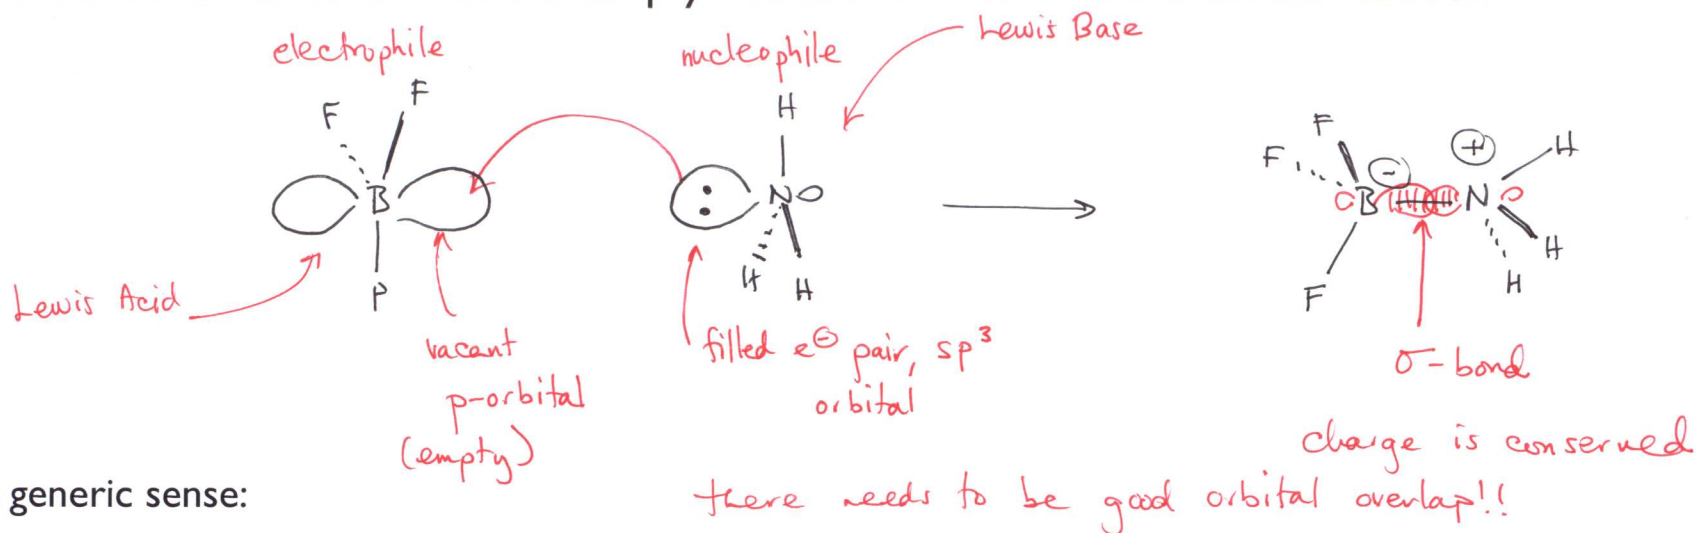 electrophile
nucleophile
Lewis Base
F
F
B
H
:
N
H
H
F
F
⊖
⊕
H
B
N
H
H
F
Lewis Acid
P
vacant
p-orbital
(empty)
filled e⊖ pair, sp³
orbital
σ-bond
charge is conserved
generic sense:
there needs to be good orbital overlap!!